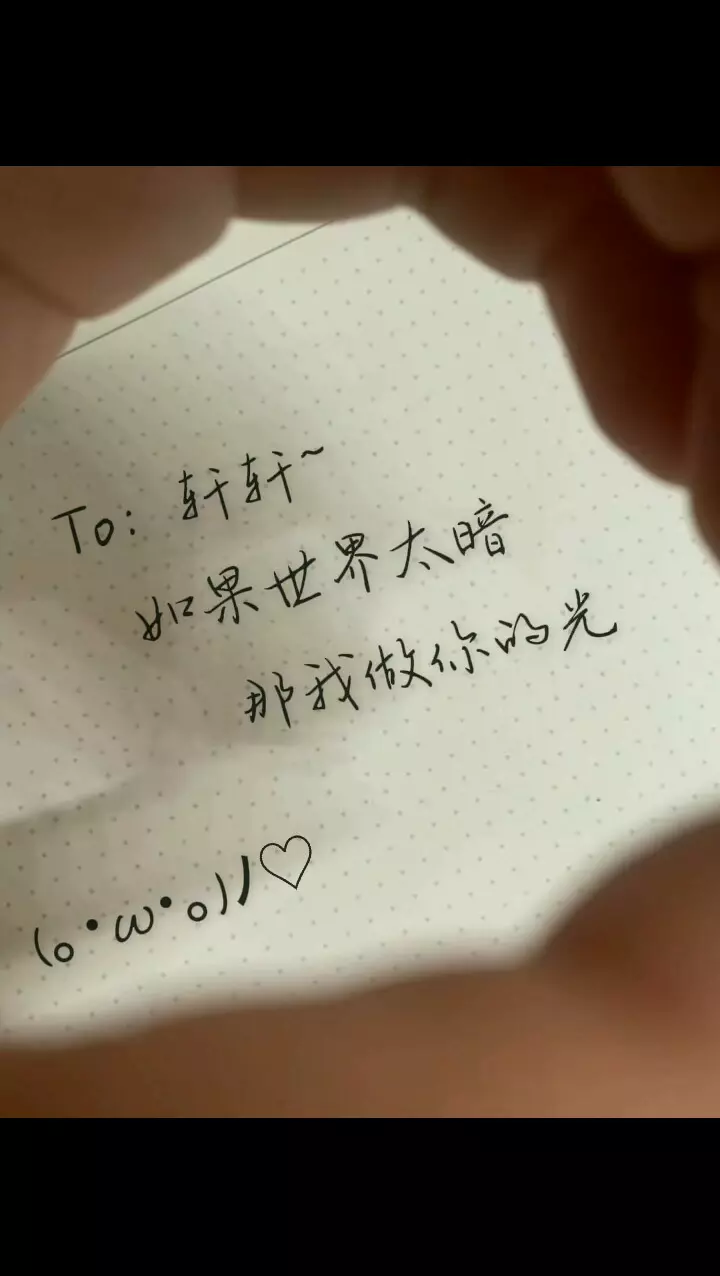 To: 轩轩~
如果世界太暗
那我做你的光
(o•ω•o)ﾉ♡